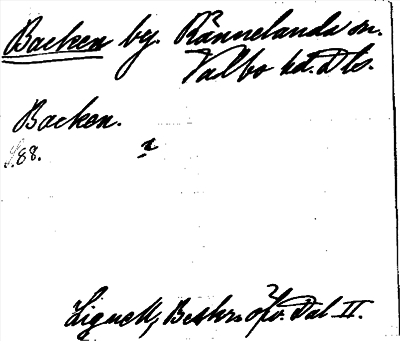 Backen by. Rännelanda sn.
Valbo hd. Dls.
Backen.
S.88.
Lignell, Beskr. öfv. Dal II.